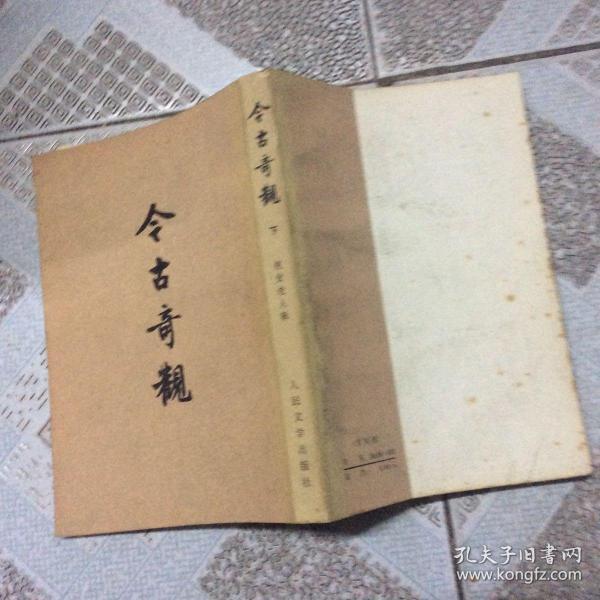 今古奇觀
今古奇觀
下
抱甕老人輯
人民文学出版社
孔夫子旧書网
www.kongfz.com